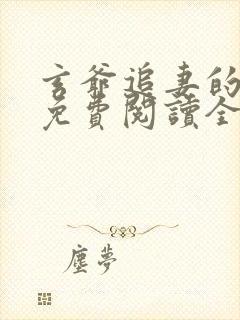 玄爺追妻的
免費閱讀全
塵夢